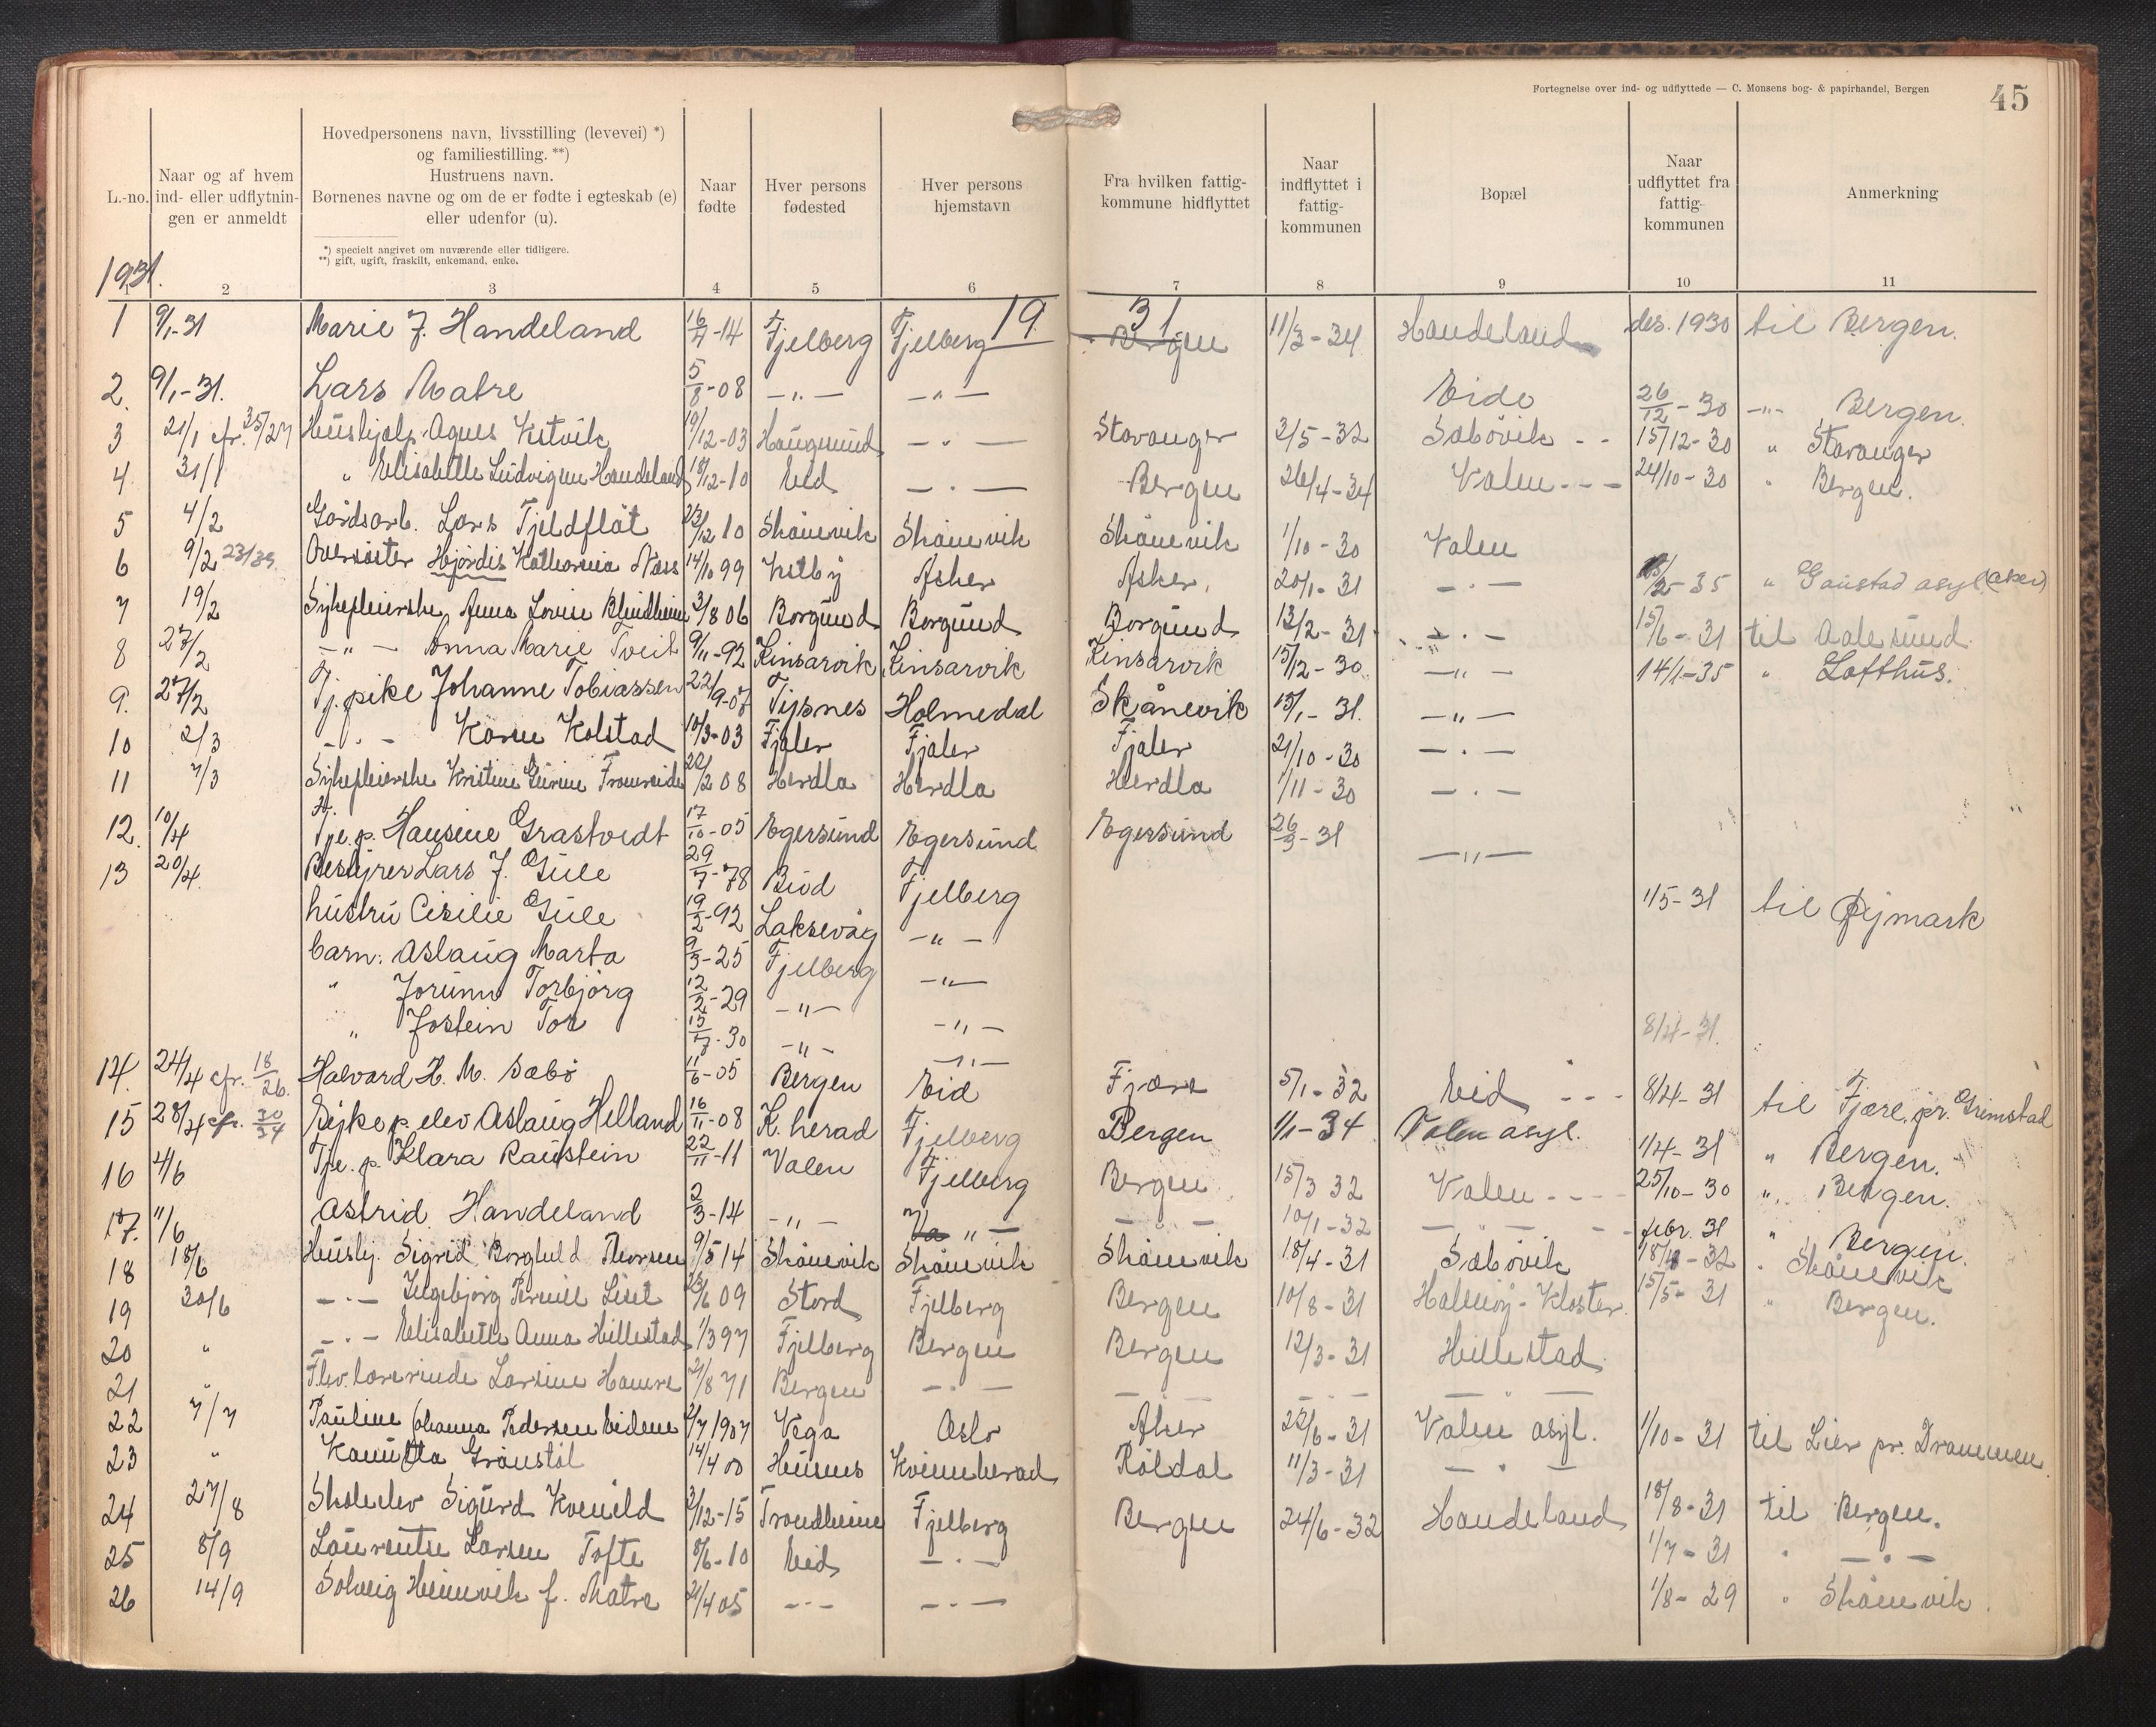 Fortegnelse over ind- og udflyttede — C. Monsens bog- & papirhandel, Bergen
45
L.-no.
Naar og af hvem ind- eller udflytnin-gen er anmeldt
Hovedpersonens navn, livsstilling (levevei) *) og familiestilling. **) Hustruens navn. Børnenes navne og om de er fødte i egteskab (e) eller udenfor (u).
*) specielt angivet om nuværende eller tidligere.
**) gift, ugift, fraskilt, enkemand, enke.
Naar fødte
Hver persons fødested
Hver persons hjemstavn
Fra hvilken fattig-kommune hidflyttet
Naar indflyttet i fattig-kommunen
Bopæl
Naar udflyttet fra fattig-kommunen
Anmerkning
1931.
1 2 3 4 5 6 7 8 9 10 11
19 31
1 9/1-31 Marie J. Handeland 16/4-14 Fjelberg Fjelberg Bergen 11/3-34 Handeland des. 1930 til Bergen.
2. 9/1-31. Lars Matre 5/8-08 -"- -"- Eide 26/12-30 -"- Bergen.
3 21/1 cfr. 35/27 Hushjelp Agnes 19/12-03 Haugesund -"- Stavanger 3/5-32 Sæbövik -- 15/12-30 " Stavanger
4 31/1 " Elisabethe Ludvigine Handeland 18/12-10 Eid -"- Bergen 26/4-34 Valen --- 24/10-30 " Bergen.
5 4/2 Gårdsarb. Lars Fjeldflåt 23/12 10 Skånevik Skånevik Skånevik 1/10-30 Valen
6 9/2 23/35 Oversöster Hjördis Katharina Næss 14/10 99 Asker Asker 20/1-31 -"- -35 " Gaustad asyl (Aker)
7 19/2 Sykepleierske Anna Lovise Blindheim 3/8 06 Borgund Borgund Borgund 13/2-31 -"- 15/6-31 til Aalesund
8 27/2 -"- Anna Marie Tveit 9/11-92 Kinsarvik Kinsarvik Kinsarvik 15/12-30 -"- 14/1-35 " Lofthus.
9. 27/2 Tj. pike Johanne Tobiassen 22/9-07 Tysnes Holmedal Skånevik 15/1-31. -"-
10 2/3 -"- Karen Kolstad 10/3-03 Fjaler Fjaler Fjaler 21/10-30 -"-
11 7/3 Sykepleierske Kristine Gurine Fromreide 22/2 08 Herdla Herdla Herdla 1/11-30 -"-
12. 10/4 Tje. p. Hansine Grastvedt 17/10-05 Egersund Egersund Egersund 26/3-31 -"-
13 20/4. Bestyrer Lars J. Gule 29/7-78 Bud Fjelberg 1/5-31 til Fejmark
hustru Cisilie Gule 19/2-92 Laksevåg -"-
barn: Aslaug Marta 9/3-25 Fjelberg -"-
" Jorunn Torbjörg 12/2-29 -"- -"-
" Jostein Tor 15/7-30 -"- -"- 8/4-31.
14. 24/4 cfr. 18/26. Halvard H. M. Sæbö 11/6-05 Bergen Eid Fjære 5/1-32 Eid --- 8/4-31 til Fjære pr. Grimstad
15 28/4 cfr. 30/34 Sykep. elev Aslaug Helland 16/11-08 K. herad Fjelberg Bergen 1/1-34 Valen asyl. 1/4-31 " Bergen.
16 4/6 Tje. p. Klara Raustein 22/11-11 Valen Fjelberg Bergen 15/3 32 Valen --- 25/10-30 " Bergen.
17. 11/6 Astrid Handeland 2/3-14 -"- -"- -"- 10/1-32 -"- - febr. 31 " Bergen.
18 18/6 Hushj. Sigrid Borghild Thorsen 9/5 14 Skånevik Skånevik Skånevik 18/4-31 Sæbövik -32 " Skånevik
19 30/6 -"- Ingebjörg Pernille 23/6 09 Stord Fjelberg Bergen 10/8-31 Halsnöy-Kloster. 15/5-31 " Bergen.
20 " -"- Elisabeth Anna Hillestad 1/3 97 Fjelberg Bergen Bergen 12/3-31 Hillestad
21 " Larsine Hamre 2/8 71 Bergen -"- -"- -"- -"-
22 7/7 Pauline Johanna Pedersen Eidem 2/7 1907 Vega Oslo Aker 22/6-31 Valen asyl. 1/10-31 til Lier pr. Drammen.
23 " Kamilla Grönstöl 14/4 00 Husnes Kvinnherad Röldal 11/3-31 -"-
24 27/8 Skoleelev Sigurd Kvenild 3/12-15 Trondheim Fjelberg Bergen 24/6-32 Handeland 18/8-31 til Bergen.
25 8/9 Laurentse Larsen Tofte 8/6-10 Eid -"- 1/7-31 " -"-
26 14/9 Solveig Heimvik f. Matre 21/4 05 -"- -"- 1/8-29 " Skånevik.